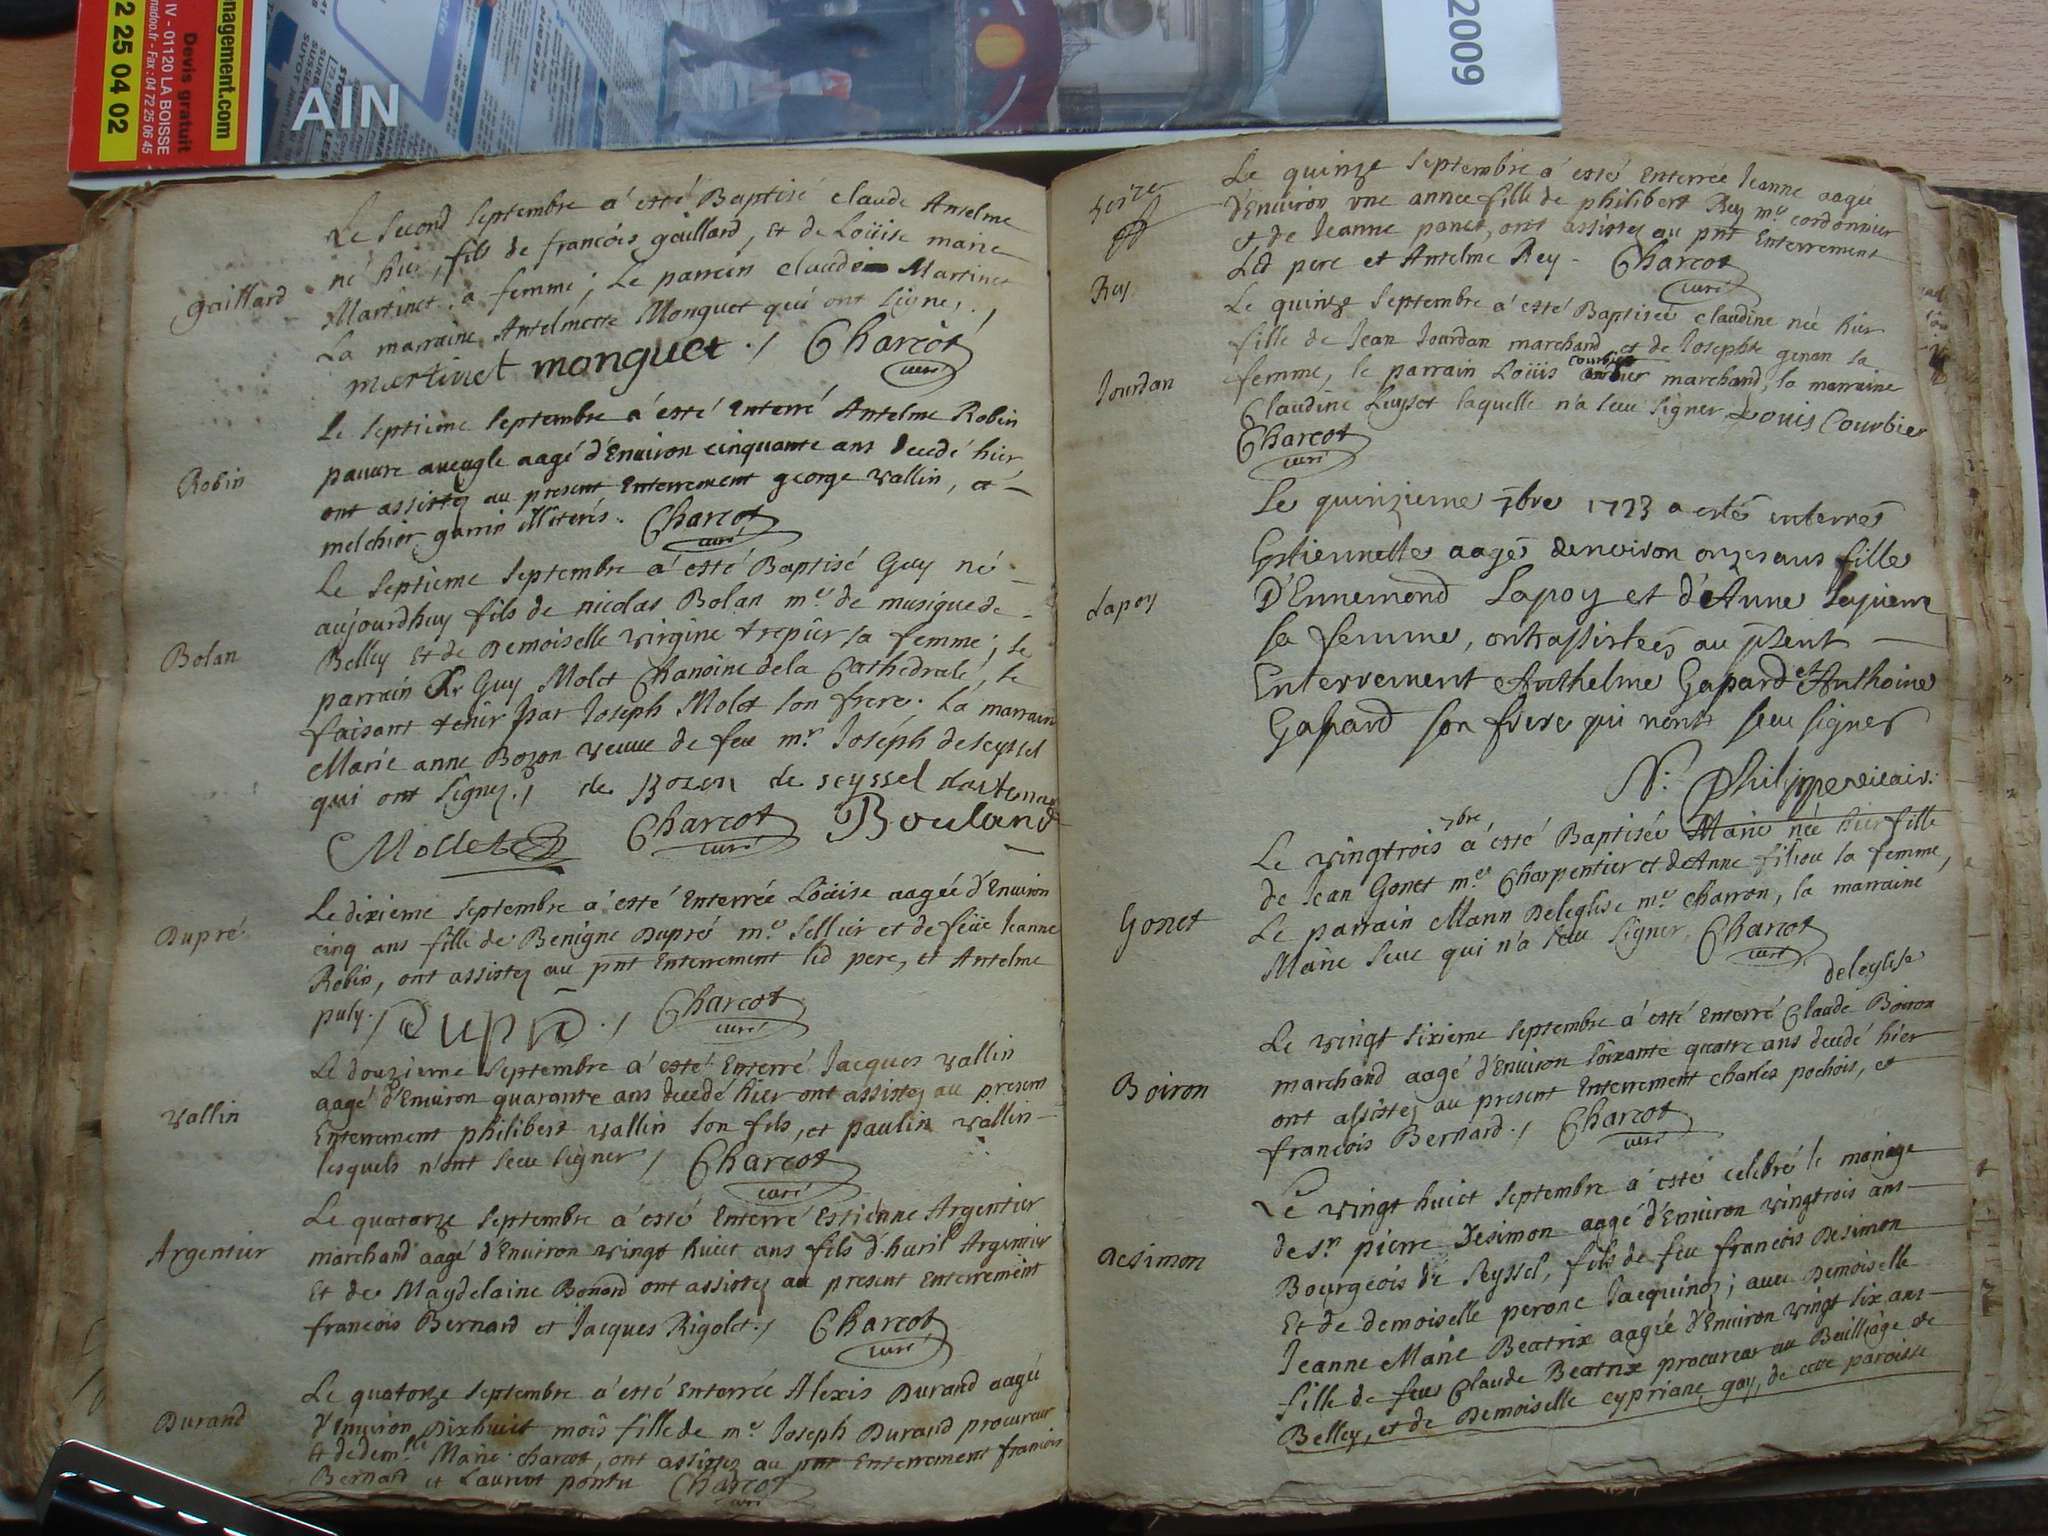 nagement.com
2 25 04 02
Devis gratuit
IV - 01120 LA BOISSE
nadoo.fr - Fax : 04 72 25 06 45
AIN
2009
Le second septembre a esté Baptisé claude Antelme
né hier, fils de francois gaillard, Et de Loüise marie
Martinet sa femme, Le parrein claude Martinet
La marraine Antelmette Monguet qui ont signé,
gaillard
martinet monguet ./ Charcot
curé
Le septieme septembre a esté Enterré Antelme Robin
pauvre aveugle aagé d'Environ cinquante ans decedé hier,
ont assistez au present Enterrement george vallin, et
melchior garrin illiterés. Charcot
curé
Robin
Le septieme septembre a esté Baptisé Guy né
aujourdhuy fils de nicolas Bolan m.e de musique de
Belley Et de Demoiselle virgine trepier sa femme; le
parrain Guy Molet Chanoine de la Cathedrale, le
faisant tenir par Joseph Molet son frere. La marrain
Marie anne Bozon veuve de feu m.r Joseph de seyssel
qui ont signez./ de Bozon de seyssel
Mollet Charcot Bouland
curé
Bolan
Le dixieme septembre a esté Enterrée Loüise aagée d'Environ
cinq ans fille de Benigne Dupré m.e sellier et de feüe Jeanne
Robin, ont assistez au pnt Enterrement led pere, et Antelme
puly./ Dupré ./ Charcot
curé
Dupré
Le douzieme septembre a esté Enterré Jacques vallin
aagé d'Environ quarante ans decedé hier ont assistez au present
Enterrement philibert vallin son fils, et paulin vallin
lesquels n'ont sceu signer / Charcot
curé
vallin
Le quatorze septembre a esté Enterré Estienne Argentier
marchand aagé d'Environ vingt huict ans fils d'huril Argentier
Et de Magdelaine Bonard ont assistez au present Enterrement
francois Bernard et Jacques Rigolet./ Charcot
curé
Argentier
Le quatorze septembre a esté Enterrée Alexis Durand aagée
d'Environ Dixhuict mois fille de m.e Joseph Durand procureur
Et de dem.lle Marie charcot, ont assistez au pnt Enterrement francois
Bernard et Laurent pontu Charcot
curé
Durand
Le quinze septembre a esté Enterrée Jeanne aagée
d'Environ une annee fille de philibert Rey m.e cordonnier
et de Jeanne ponet, ont assistez au pnt Enterrement
Led pere et Antelme Rey - Charcot
curé
Rey
Le quinze septembre a esté Baptisée claudine née hier
fille de Jean Jourdan marchand et de Josephte genan sa
femme, le parrain Loüis courbier marchand, la marraine
Claudine Luyset laquelle n'a sceu signer Louis Courbier
Charcot
curé
Jourdan
Le quinzieme 7bre 1723 a estés enterrés
Estiennette aagés denviron onze ans fille
D'Ennemond Lapoy et d'Anne
sa femme, ont assistees au psent
Enterrement Anthelme Gapard et Anthoine
Gapard son frere qui nont sceu signer
N: Philippe vicair:
Lapoy
Le vingtrois 7bre a esté Baptisée Marie née hier fille
de Jean Gonet m.e Charpentier et de Anne filiou sa femme,
Le parrain Mann Deleglise m.e charron, la marraine
Marie seve qui n'a sceu signer. Charcot
curé
deleglise
Gonet
Le vingt sixieme septembre a esté Enterré Claude Boiron
marchand aagé d'Environ soixante quatre ans decedé hier
ont assistez au present Enterrement charles pochois, et
francois Bernard./ Charcot
curé
Boiron
Le vingt huict septembre a esté celebré le mariage
de sr. pierre Desimon aagé d'Environ vingtrois ans
Bourgeois de seyssel, fils de feu francois Desimon
Et de demoiselle perone Jacquinos; avec Demoiselle
Jeanne Marie Beatrix aagée d'Environ vingt six ans
fille de feu Claude Beatrix procureur au Bailliage de
Belley, et de Demoiselle cypriane gay, de cette paroisse
Desimon